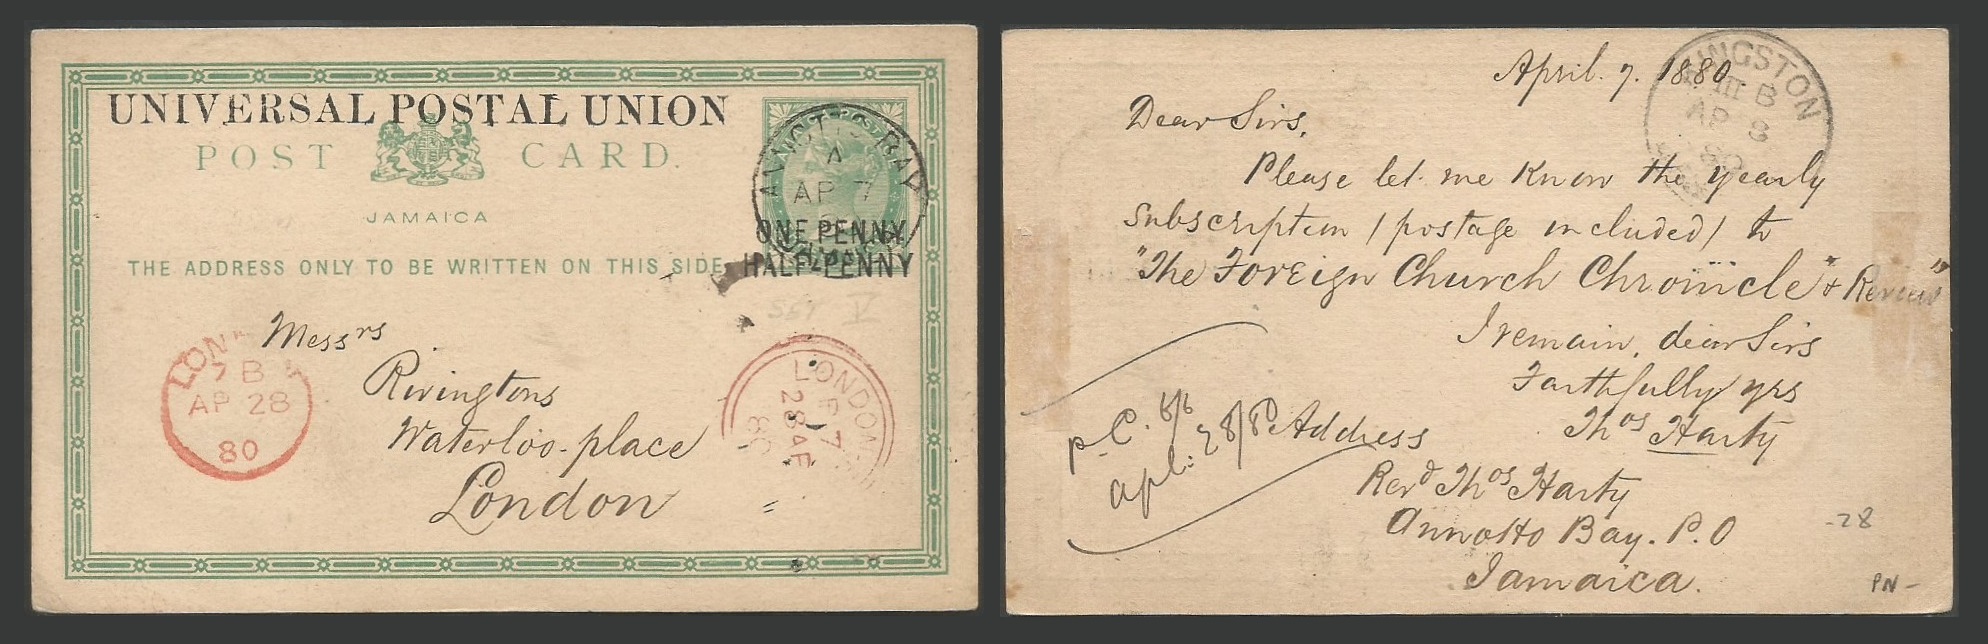 UNIVERSAL POSTAL UNION
POST CARD.
JAMAICA
THE ADDRESS ONLY TO BE WRITTEN ON THIS SIDE
ANNOTTO BAY
A
AP 7
ONE PENNY
HALF-PENNY
SET V
Messrs
Rivingtons
Waterloo-place
London
LON
7 B
AP 28
80
LONDON
28 AP
80
April. 7. 1880
KINGSTON
B
AP 8
80
Dear Sirs,
Please let me know the yearly
subscription / postage included / to
"The Foreign Church Chronicle" & Review"
I remain, dear Sirs
Faithfully yrs
Thos Harty
p.C. 6/6
apl: 28/80
Address
Revd Thos Harty
Annotto Bay. P.O
Jamaica.
-28
PN-